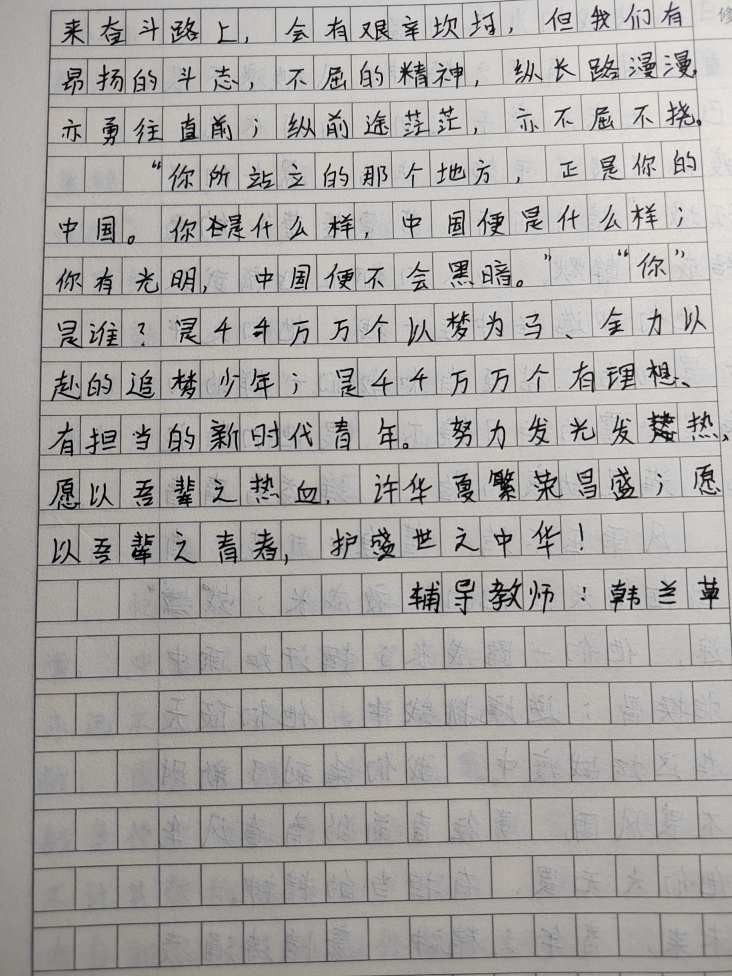 来奋斗路上，会有艰辛坎坷，但我们有
昂扬的斗志，不屈的精神，纵长路漫漫，
亦勇往直前；纵前途茫茫，亦不屈不挠。
“你所站立的那个地方，正是你的
中国。你是什么样，中国便是什么样；
你有光明，中国便不会黑暗。”“你”
是谁？是千千万万个以梦为马、全力以
赴的追梦少年；是千千万万个有理想、
有担当的新时代青年。努力发光发热，
愿以吾辈之热血，许华夏繁荣昌盛；愿
以吾辈之青春，护盛世之中华！
辅导教师：韩兰革